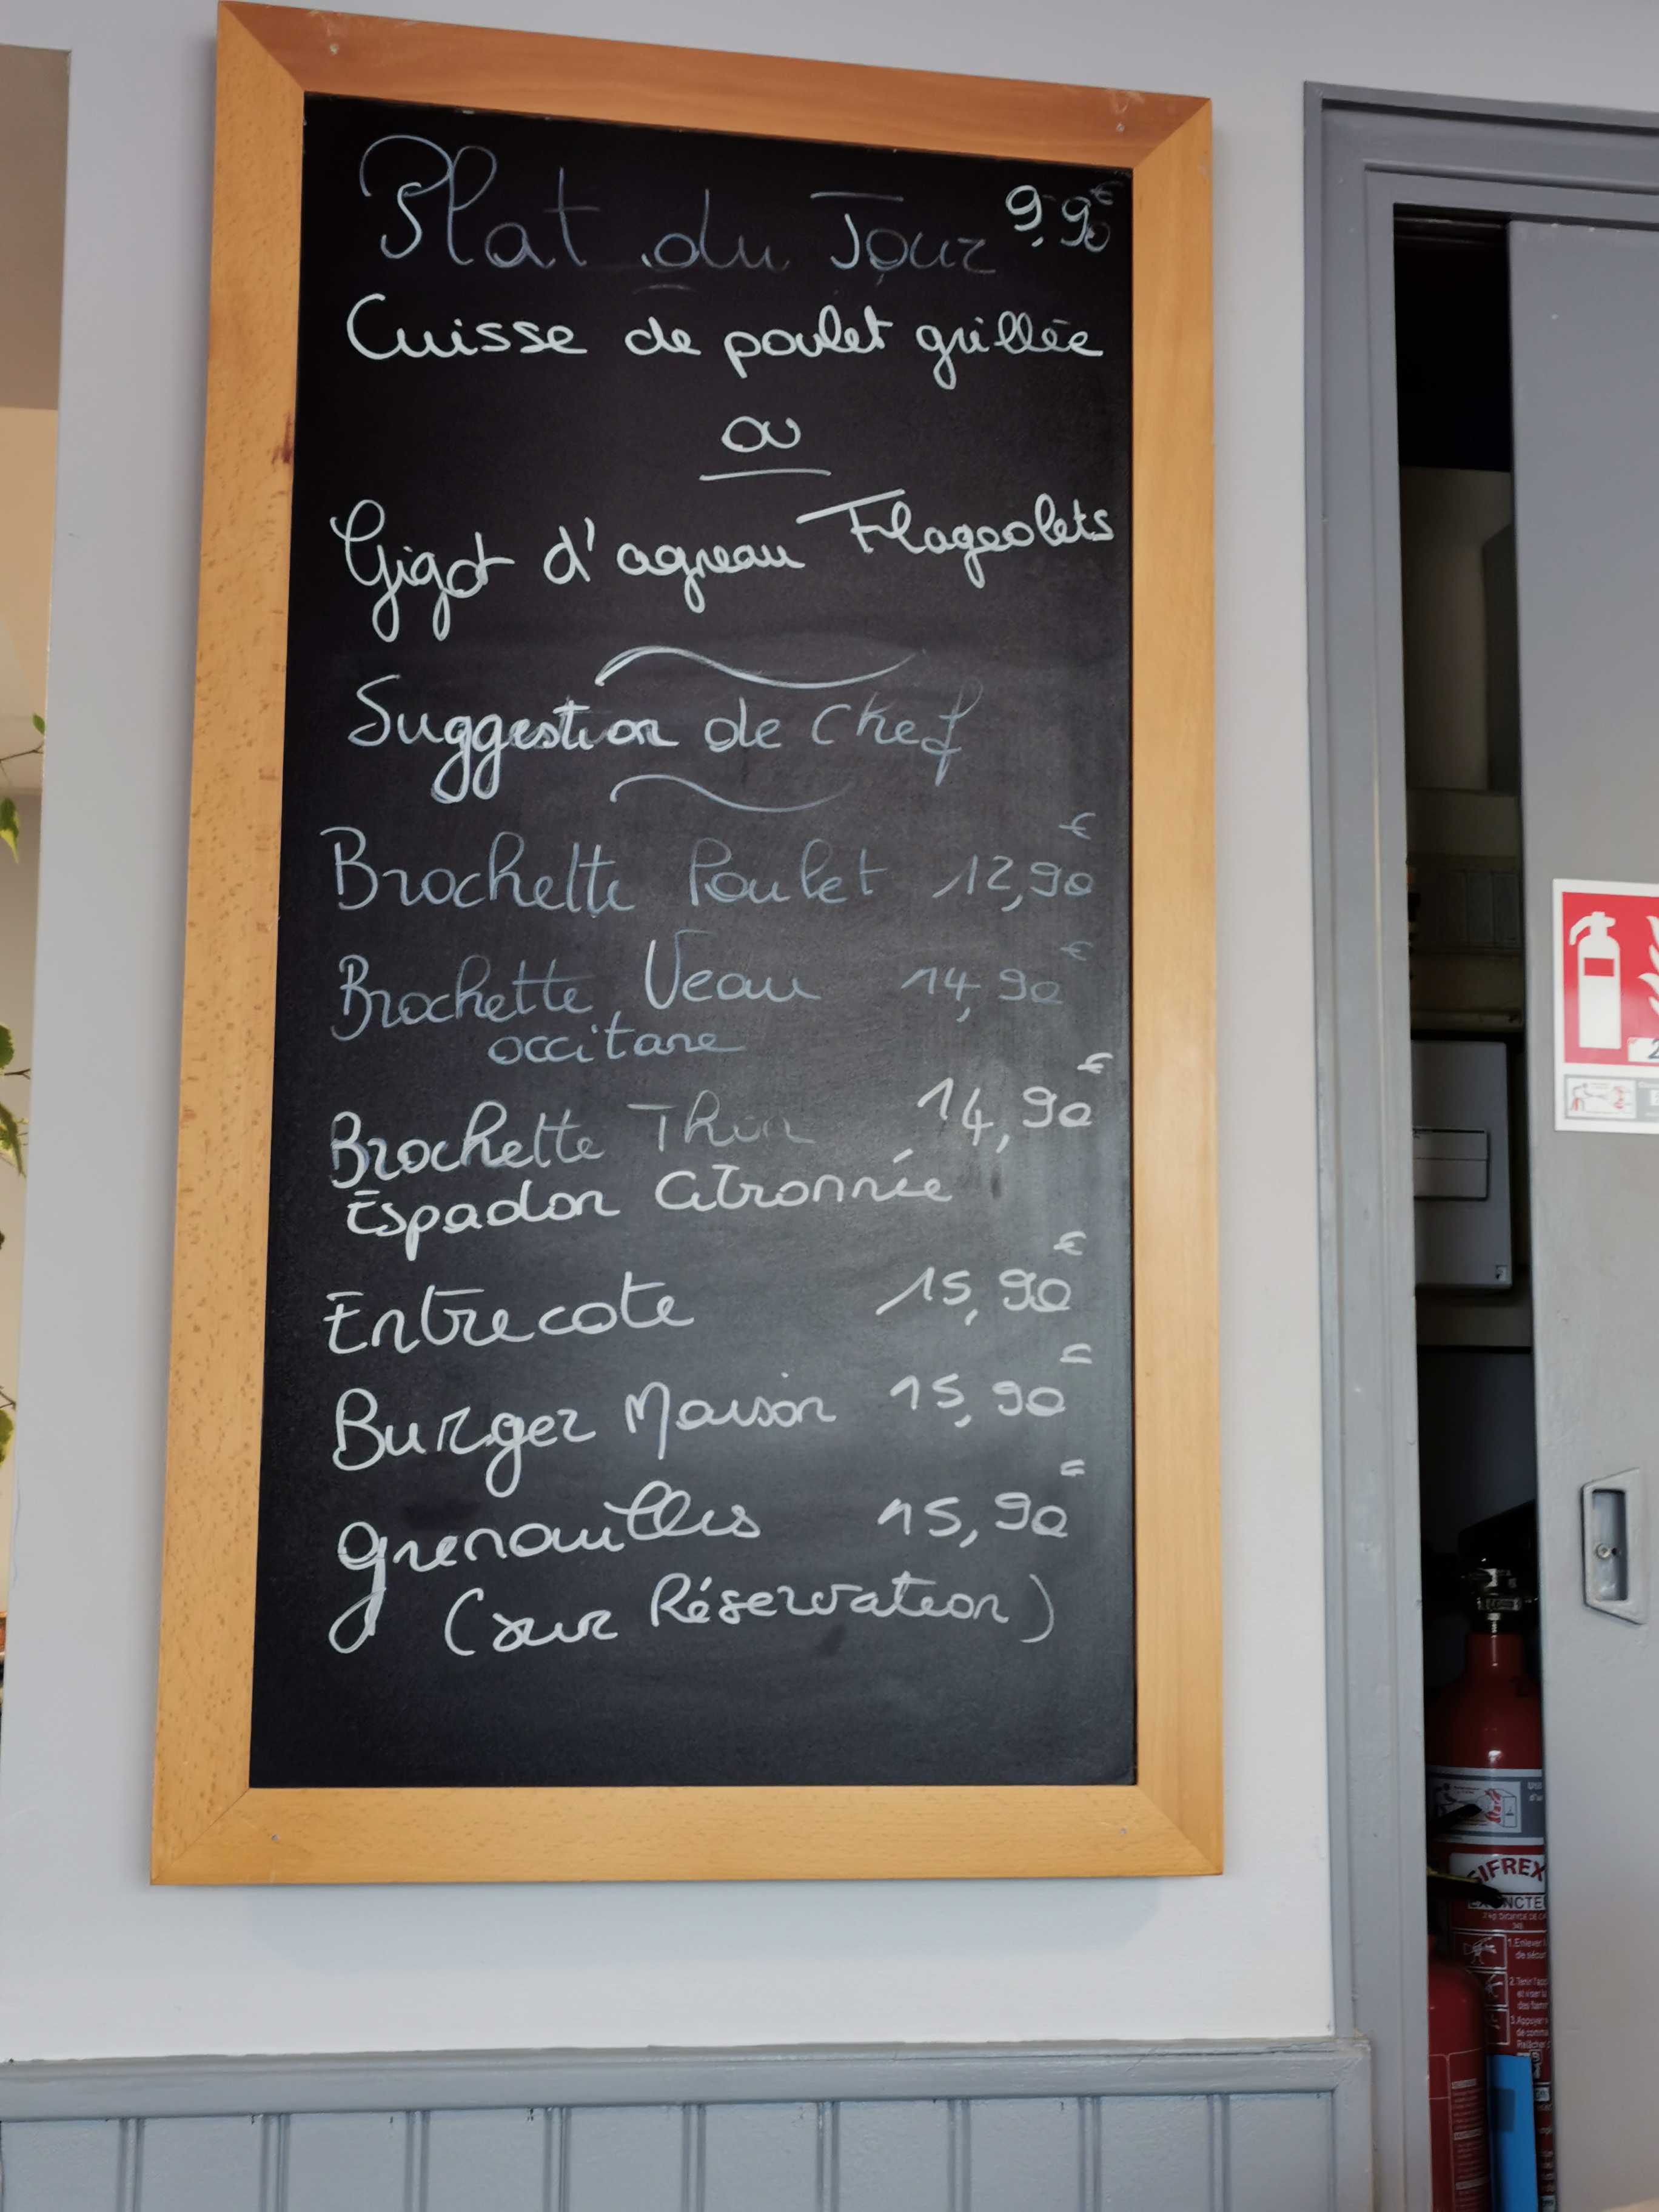 Plat du Jour 9,90€
Cuisse de poulet grillée
ou
Gigot d'agneau Flageolets
Suggestion de Chef
Brochette Poulet 12,90€
Brochette Veau 14,90€
occitane
Brochette Thon 14,90€
Espadon Citronnée
Entrecote 15,90€
Burger Maison 15,90€
Grenouilles 15,90€
(sur Réservation)
SIFREX